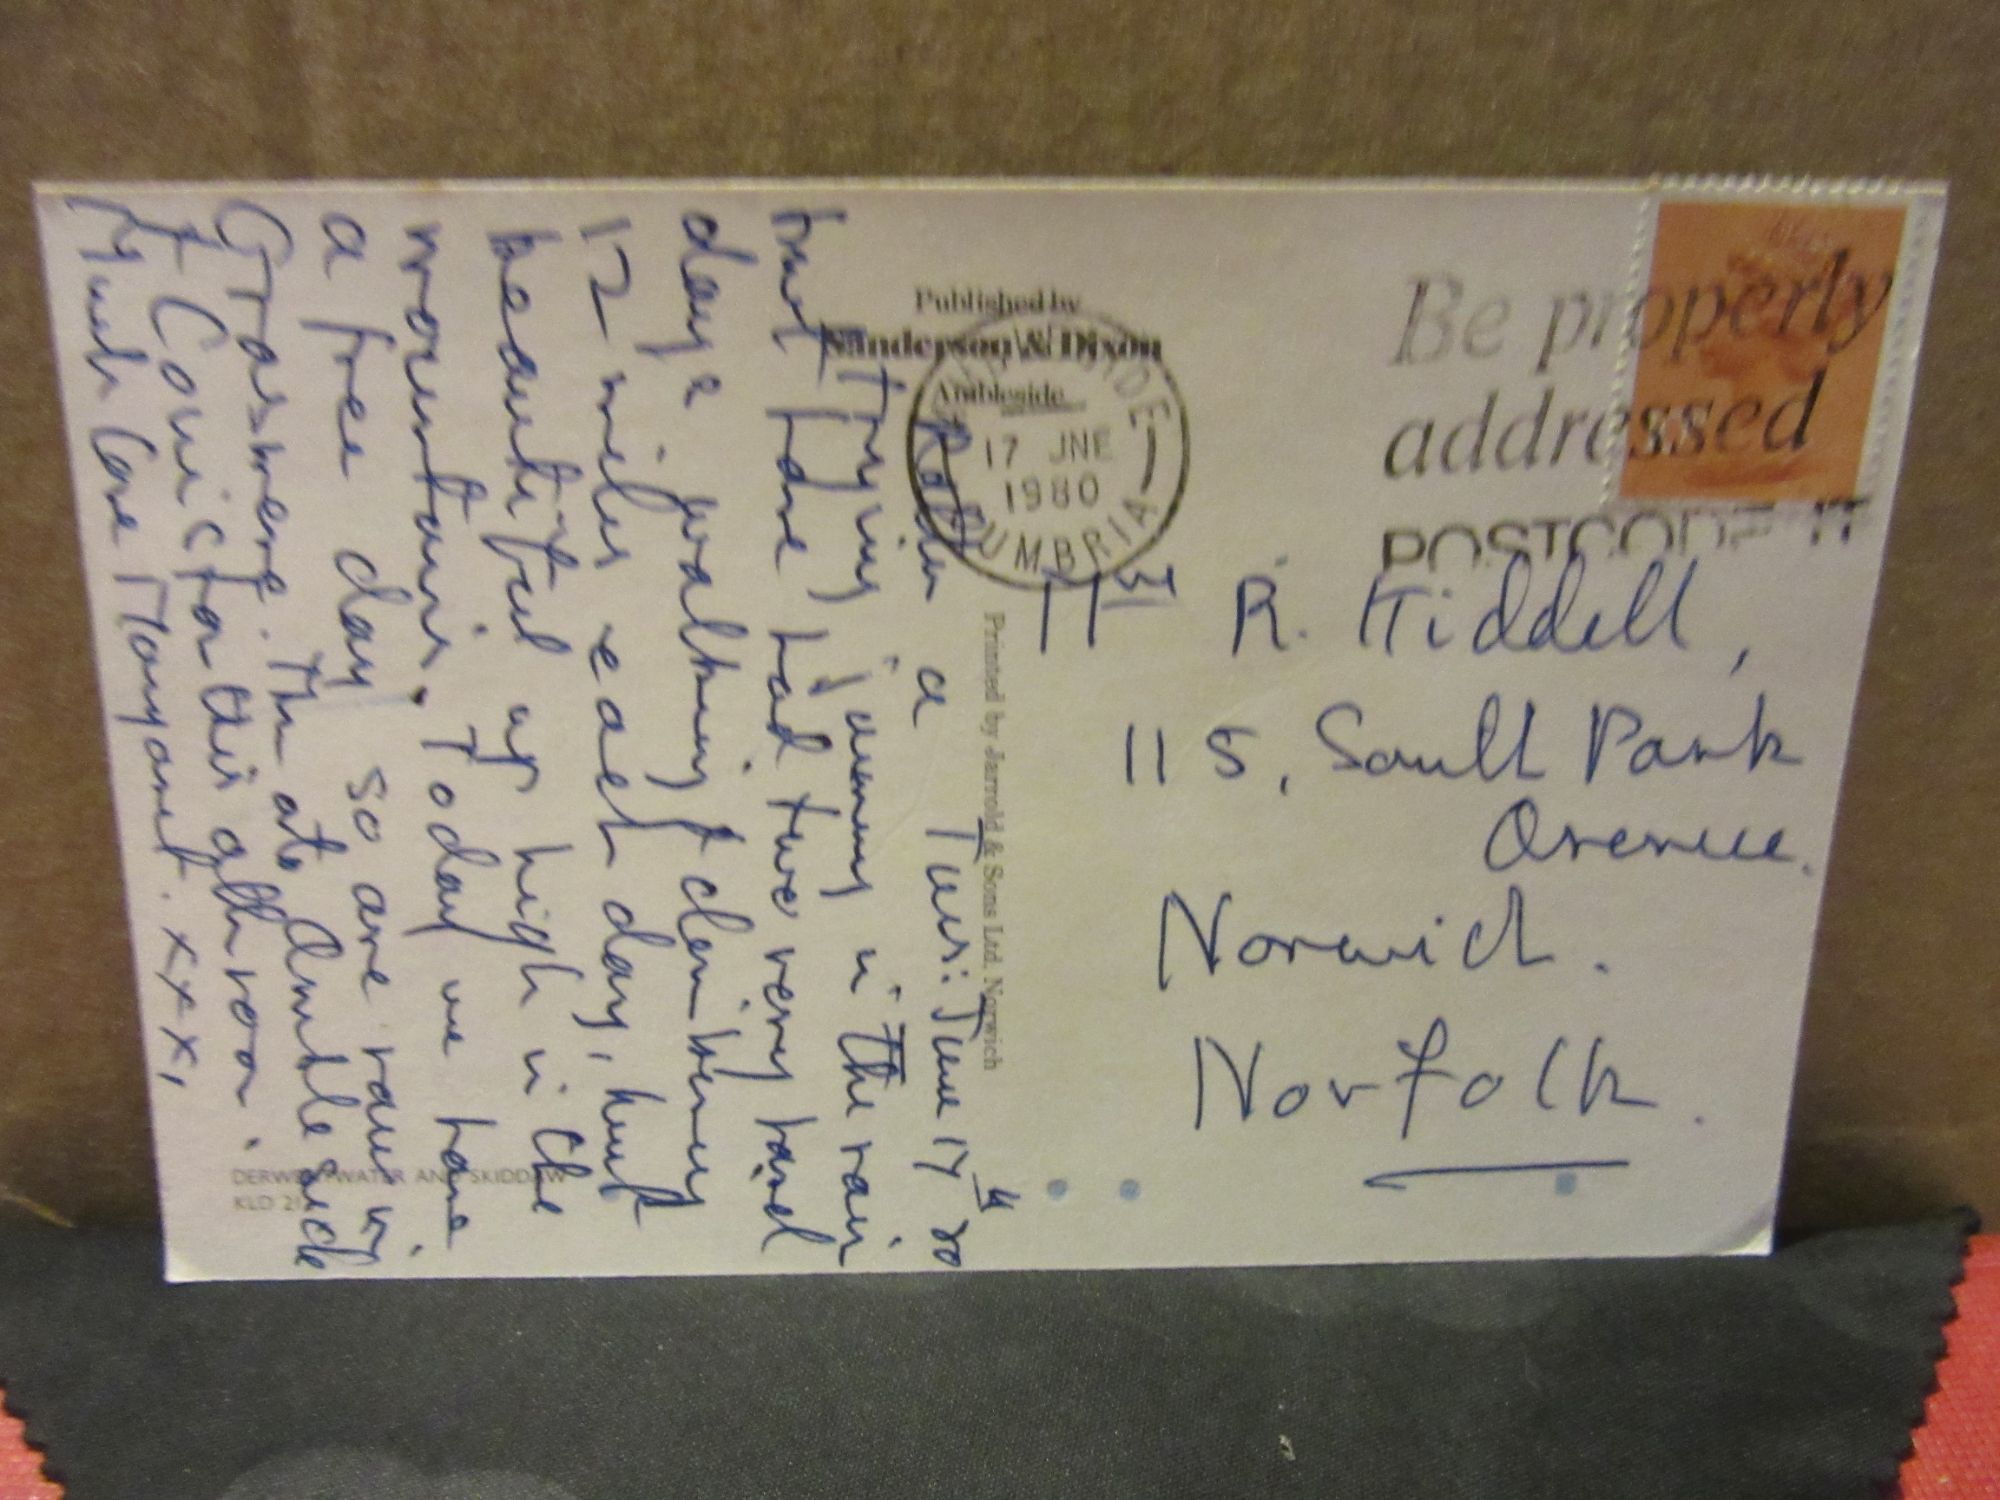 Published by
Sanderson & Dixon
Ambleside
17 JNE
1980
CUMBRIA
Be properly
addressed
POSTCODE IT
R. Kiddell,
115, South Park
Avenue.
Norwich.
Norfolk.
Printed by Jarrold & Sons Ltd. Norwich
a Tues: June 17th 80
Trying in the rain
but have had two very hard
days walking & climbing
12 miles each day, but
beautiful up high in the
mountains. Today we have
a free day so are now in
Grasmere. The at Ambleside
& Coniston this afternoon.
Much love Margaret. x x x.
DERWENTWATER AND SKIDDAW
KLD 21